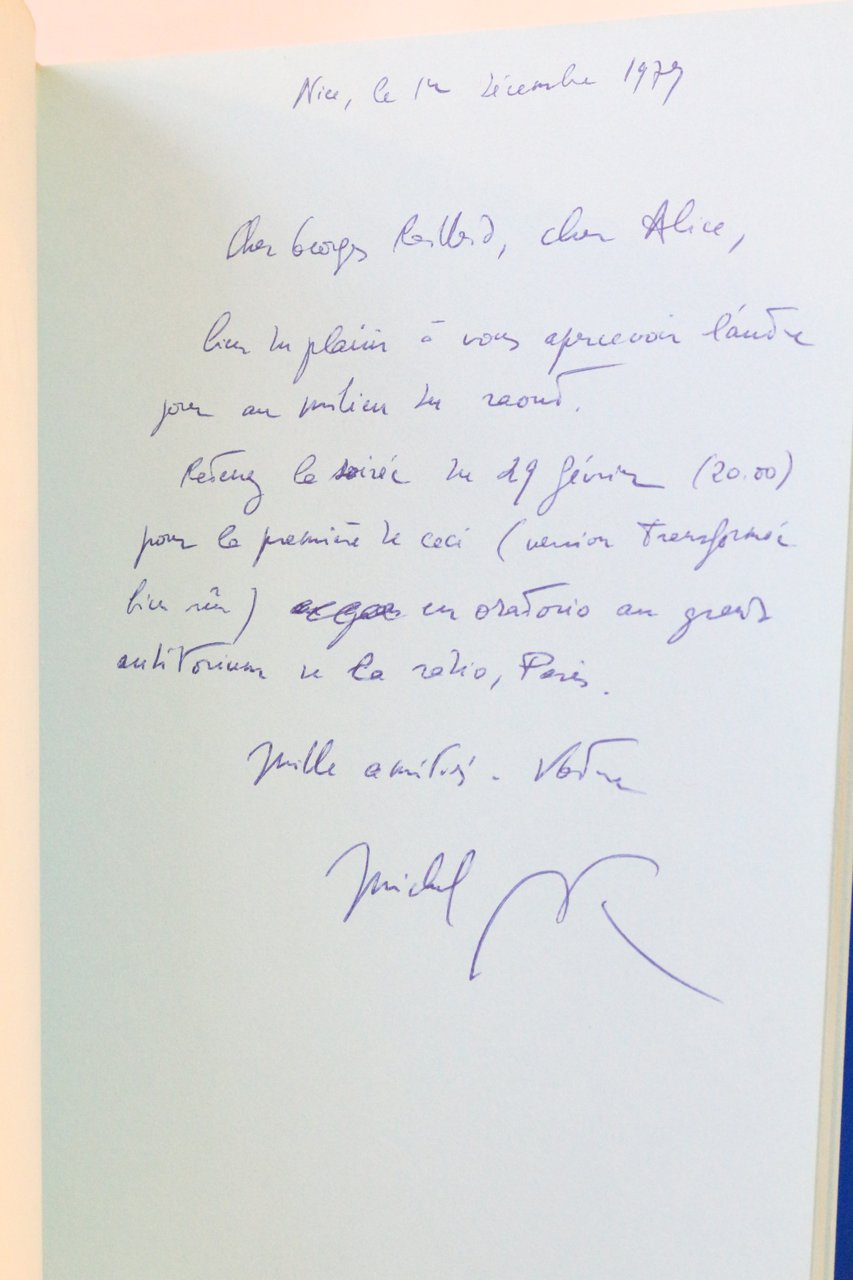 Nice, le 1er décembre 1979
Cher Georges Raillard, cher Alice,
bien du plaisir à vous apercevoir l'autre
jour au milieu du raout.
Retenez la soirée du 29 février (20.00)
pour la première de ceci (version transformée
bien sûr) en oratorio au grand
auditorium de la radio, Paris.
Mille amitiés. Votre
Michel